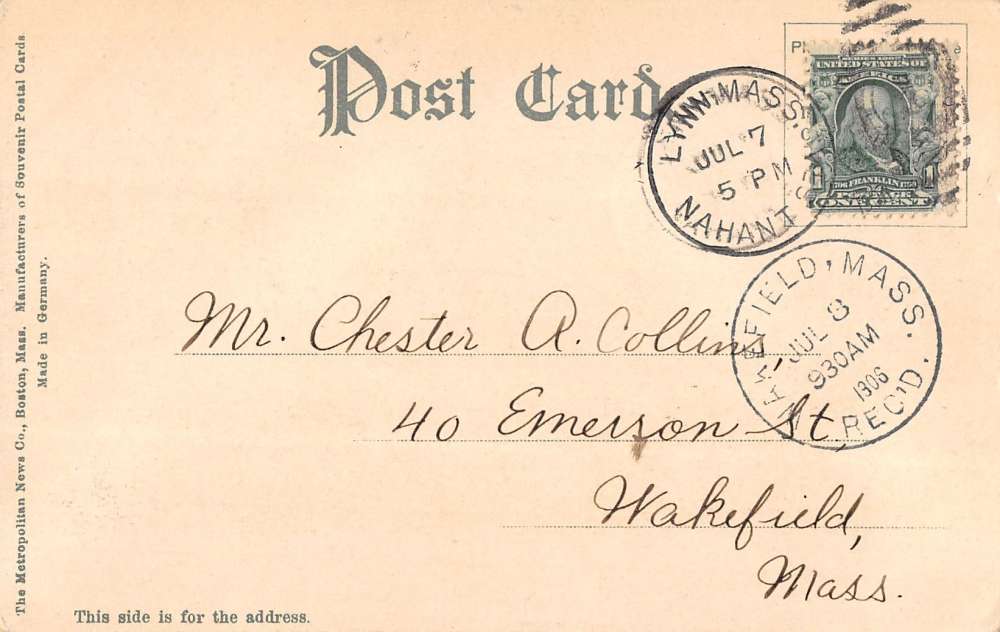 Post Card
SERIES 1902
UNITED STATES OF
AMERICA
1706 FRANKLIN 1790
POSTAGE
1 ONE CENT 1
LYNN MASS.
JUL 7
5 PM
NAHANT
WAKEFIELD, MASS.
JUL 8
930AM
1906
REC'D.
Mr. Chester A. Collins,
40 Emerson St,
Wakefield,
Mass.
This side is for the address.
The Metropolitan News Co., Boston, Mass. Manufacturers of Souvenir Postal Cards.
Made in Germany.